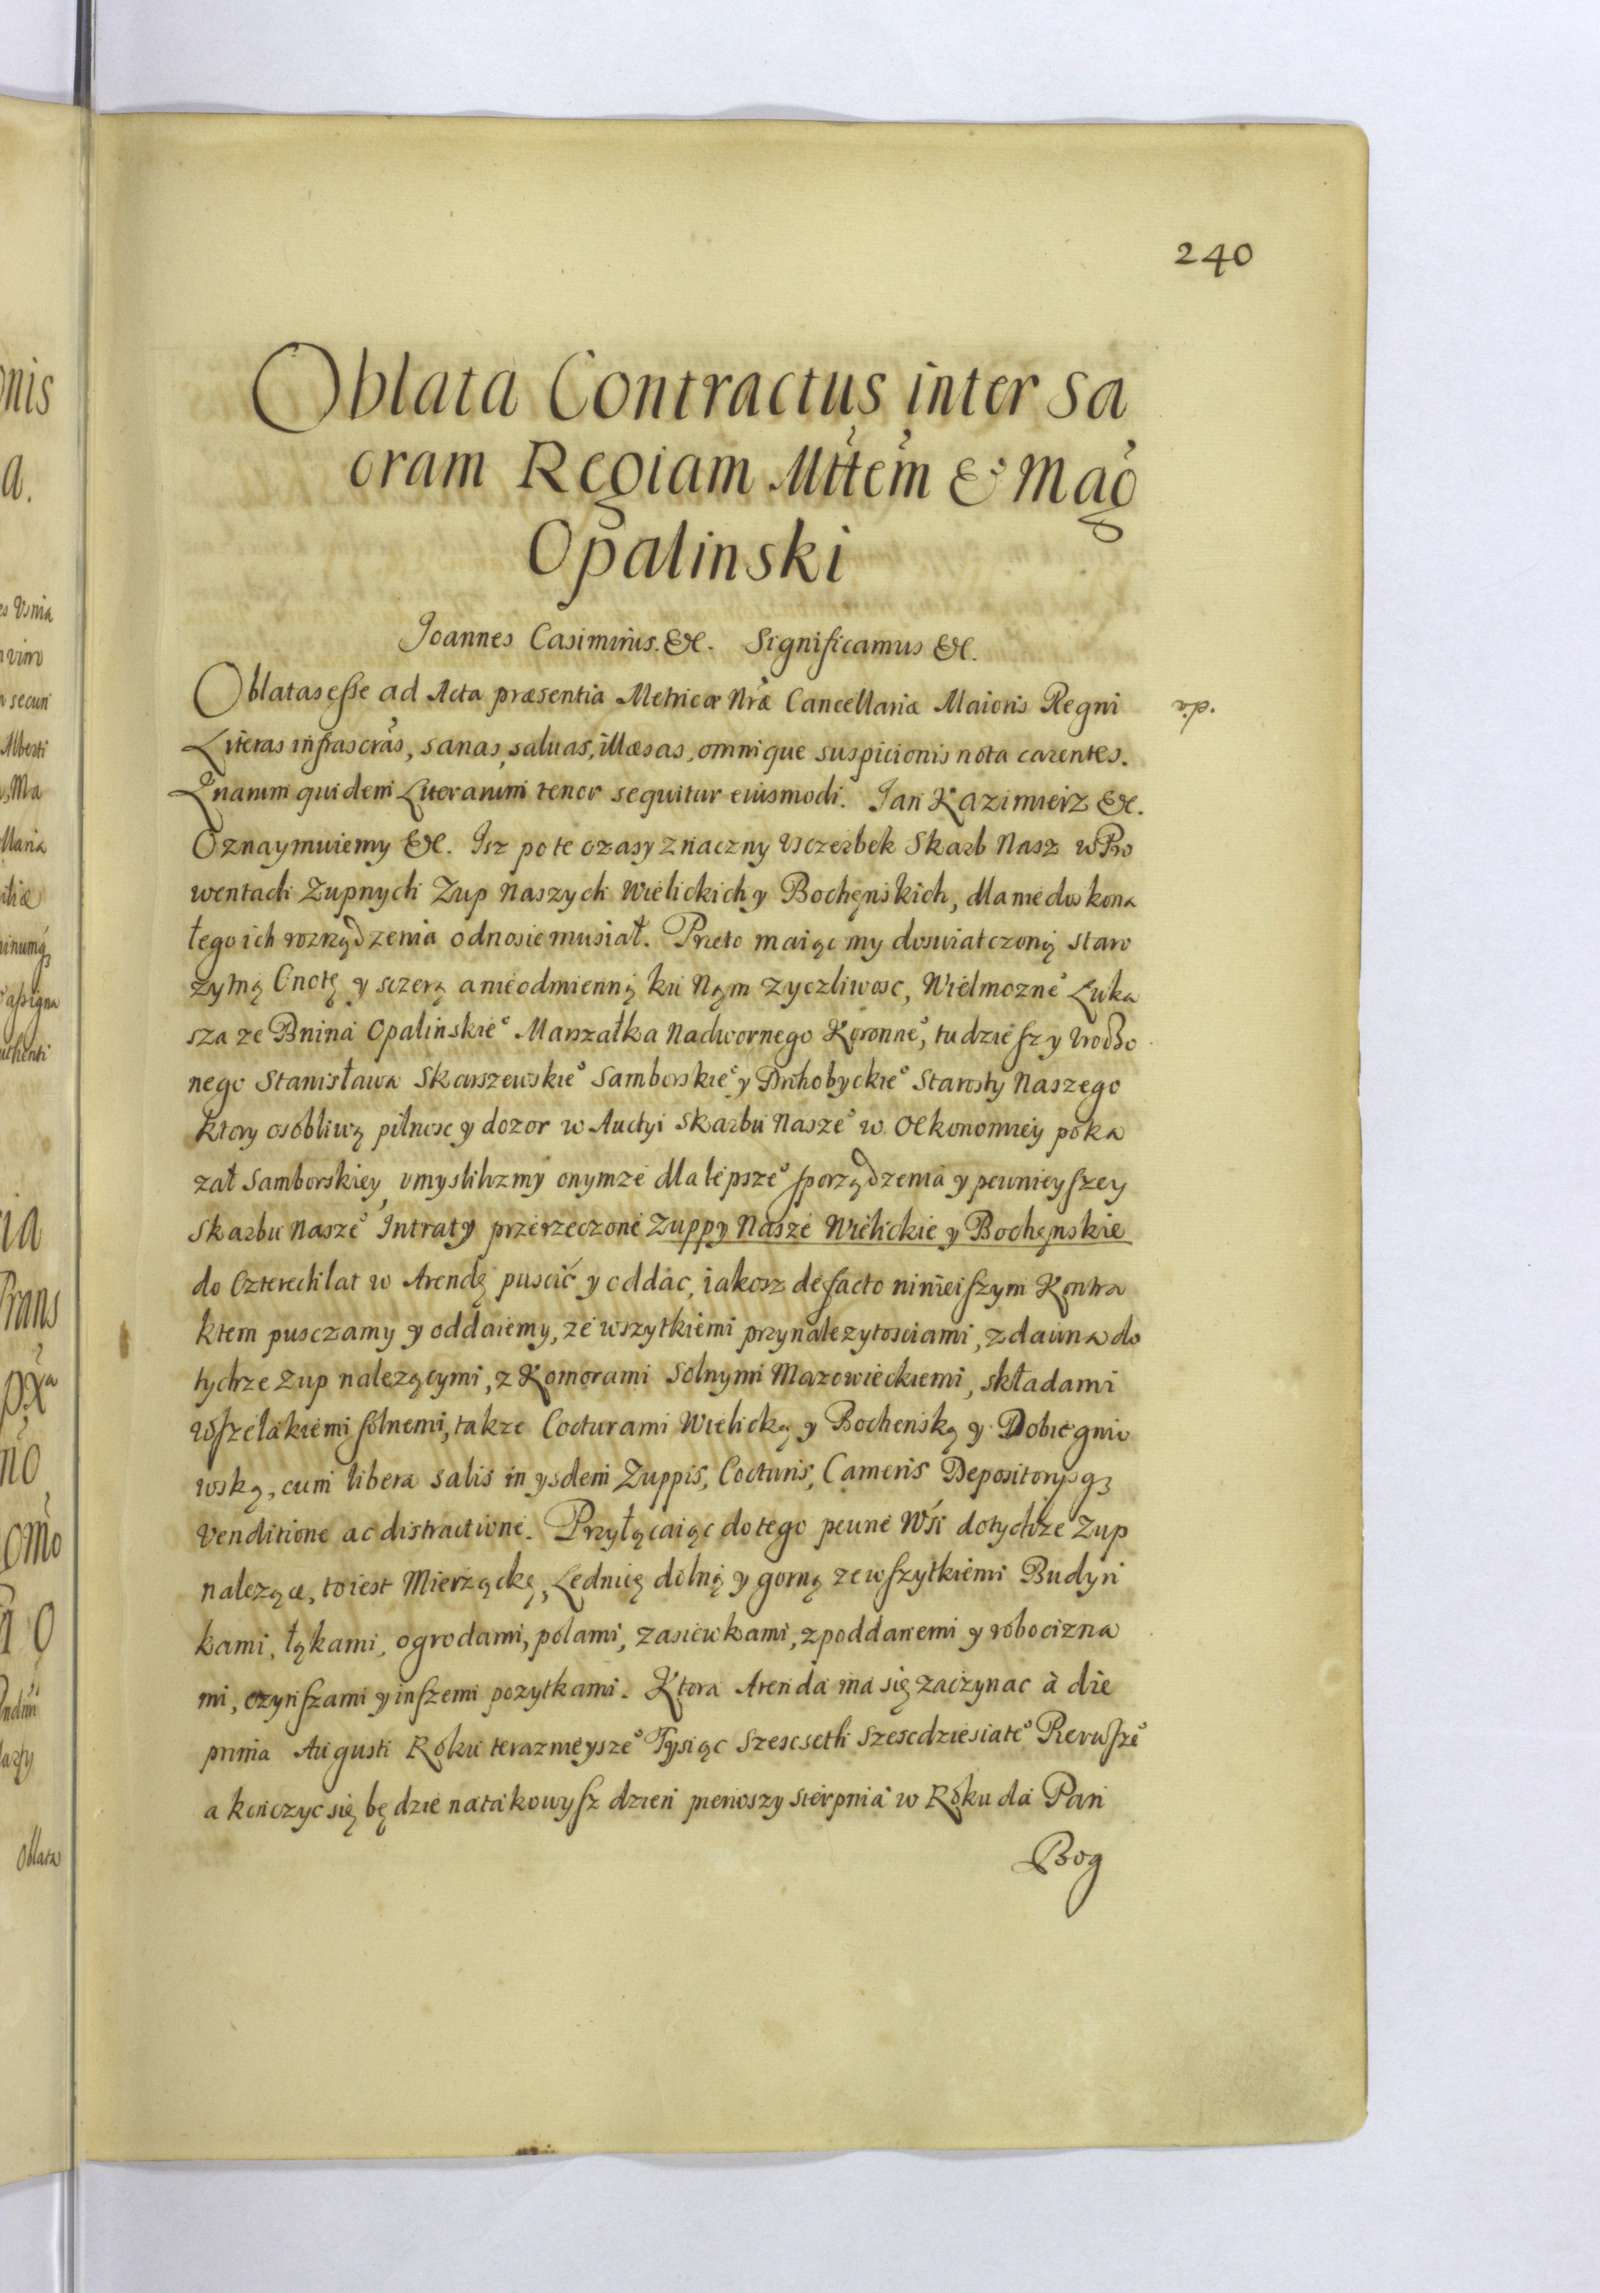 240
Oblata Contractus inter Sa
cram Regiam Mttem & Mag
Opalinski
Joannes Casimirus. &c. Significamus &c.
Oblatas esse ad Acta præsentia Metricæ Nræ Cancellariæ Maioris Regni
Literas infrascras, sanas, saluas, illæsas, omnique suspicionis nota carentes.
Quarum quidem Literarum tenor sequitur eiusmodi. Jan Kazimierz &c.
Oznaymuiemy &c. Isz po te czasy znaczny Vsczerbek Skarb Nasz w Pro
wentach Zupnych Zup Naszych Wielickich y Bochęnskich, dla niedoskona
łego ich rozrządzenia odnosie musiał. Przeto maiąc my doswiatczoną staro
zytną Cnotę y sczerą a nieodmienną ku Nąm zyczliwosc, Wielmozneº Luka
sza ze Bnina Opalinskieº Marszałka Nadwornego Koronneº, tudziesz y Vrodzo
nego Stanisława Skarszewskieº Samborskieº y Drohobyckieº Starosty Naszego
ktory osobliwą pilnosc y dozor w Auctyi Skarbu Naszeº w Oekonomiey poka
zał Samborskiey, vmyslilizmy onymze dla lepszeº sporządzenia y pewnieyszey
Skarbu Naszeº Intraty przerzeczone Zuppy Nasze Wielickie y Bochęnskie
do Czterech lat w Arendę puscić y oddac, iakosz de facto ninieiszym Kontra
ktem pusczamy y oddaiemy, ze wszytkiemi przynalezytosciami, z dawna do
tychze Zup nalezącymi, z Komorami Solnymi Mazowieckiemi, składami
wszelakiemi solnemi, takze Cocturami Wielicką y Bochenską y Dobiegnie
wską, cum libera salis in ysdem Zuppis, Cocturis, Cameris Depositorysqз
Venditione ac distractione. Przyłącaiąc do tego pewne Wśi do tychze Zup
nalezące, to iest Mierzączkę, Lednicę dolną y gorną ze wszytkiemi Budyn
kami, łąkami, ogrodami, polami, zasiewkami, z poddanemi y robocizna
mi, czynszami y inszemi pozytkami. Ktora Arenda ma się zaczynac à die
prima Augusti Roku terazneyszeº Tysiąc Szescseth Szescdziesiateº Pierwszeº
a konczyc się będzie na takowysz dzien pierwszy Sierpnia w Roku da Pan
Bog